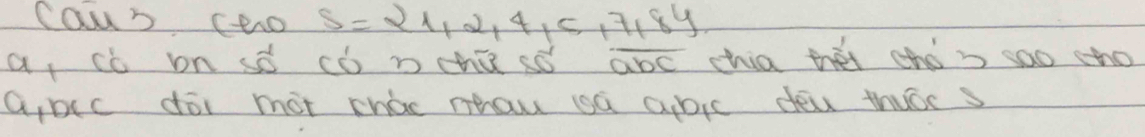 Câu 3. Cho S = {1, 2, 4, 5, 7, 8}.
a, có bn số có 3 chữ số abc chia hết cho 3 sao cho
a,b,c đôi một khác nhau và a,b,c đều thuộc S